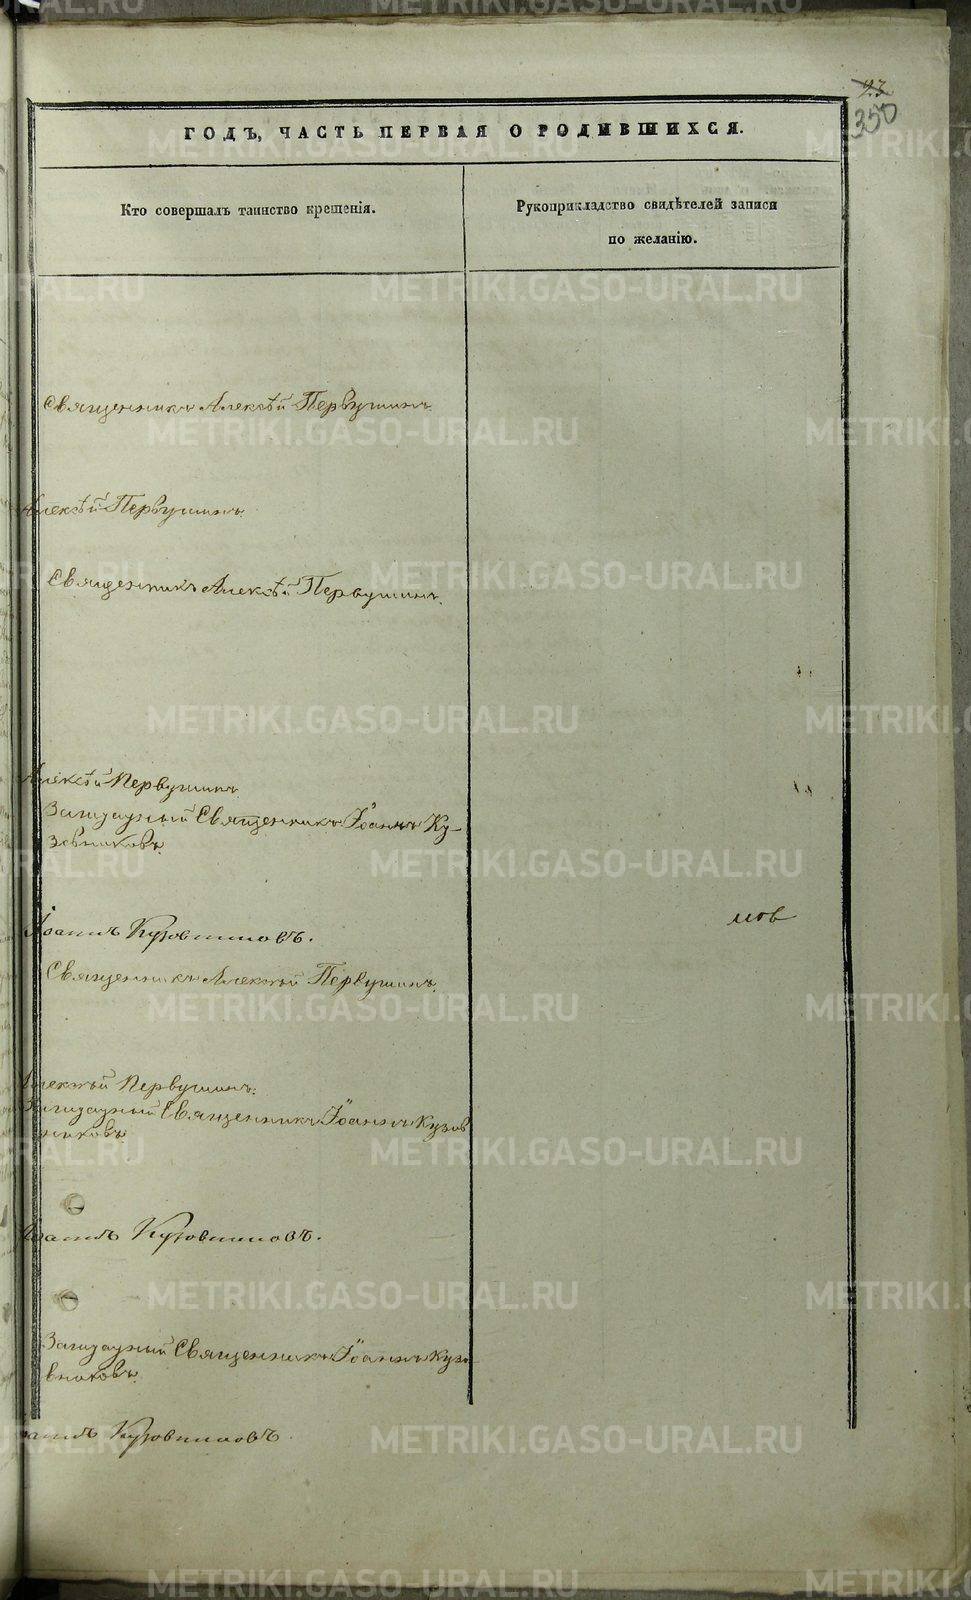 93
350
ГОДЪ, ЧАСТЬ ПЕРВАЯ О РОДИВШИХСЯ.
Кто совершалъ таинство крещенія.
Рукоприкладство свидѣтелей записи
по желанію.
Священникъ Алексѣй Первушинъ.
Алексѣй Первушинъ.
Священникъ Алексѣй Первушинъ.
Алексѣй Первушинъ.
Заштатный Священникъ Іоаннъ Ку-
зовниковъ.
мов
Іоаннъ Кузовниковъ.
Священникъ Алексѣй Первушинъ.
Алексѣй Первушинъ.
Заштатный Священникъ Іоаннъ Кузов
никовъ.
Іоаннъ Кузовниковъ.
Заштатный Священникъ Іоаннъ Кузо-
вниковъ.
Іоаннъ Кузовниковъ
METRIKI.GASO-URAL.RU